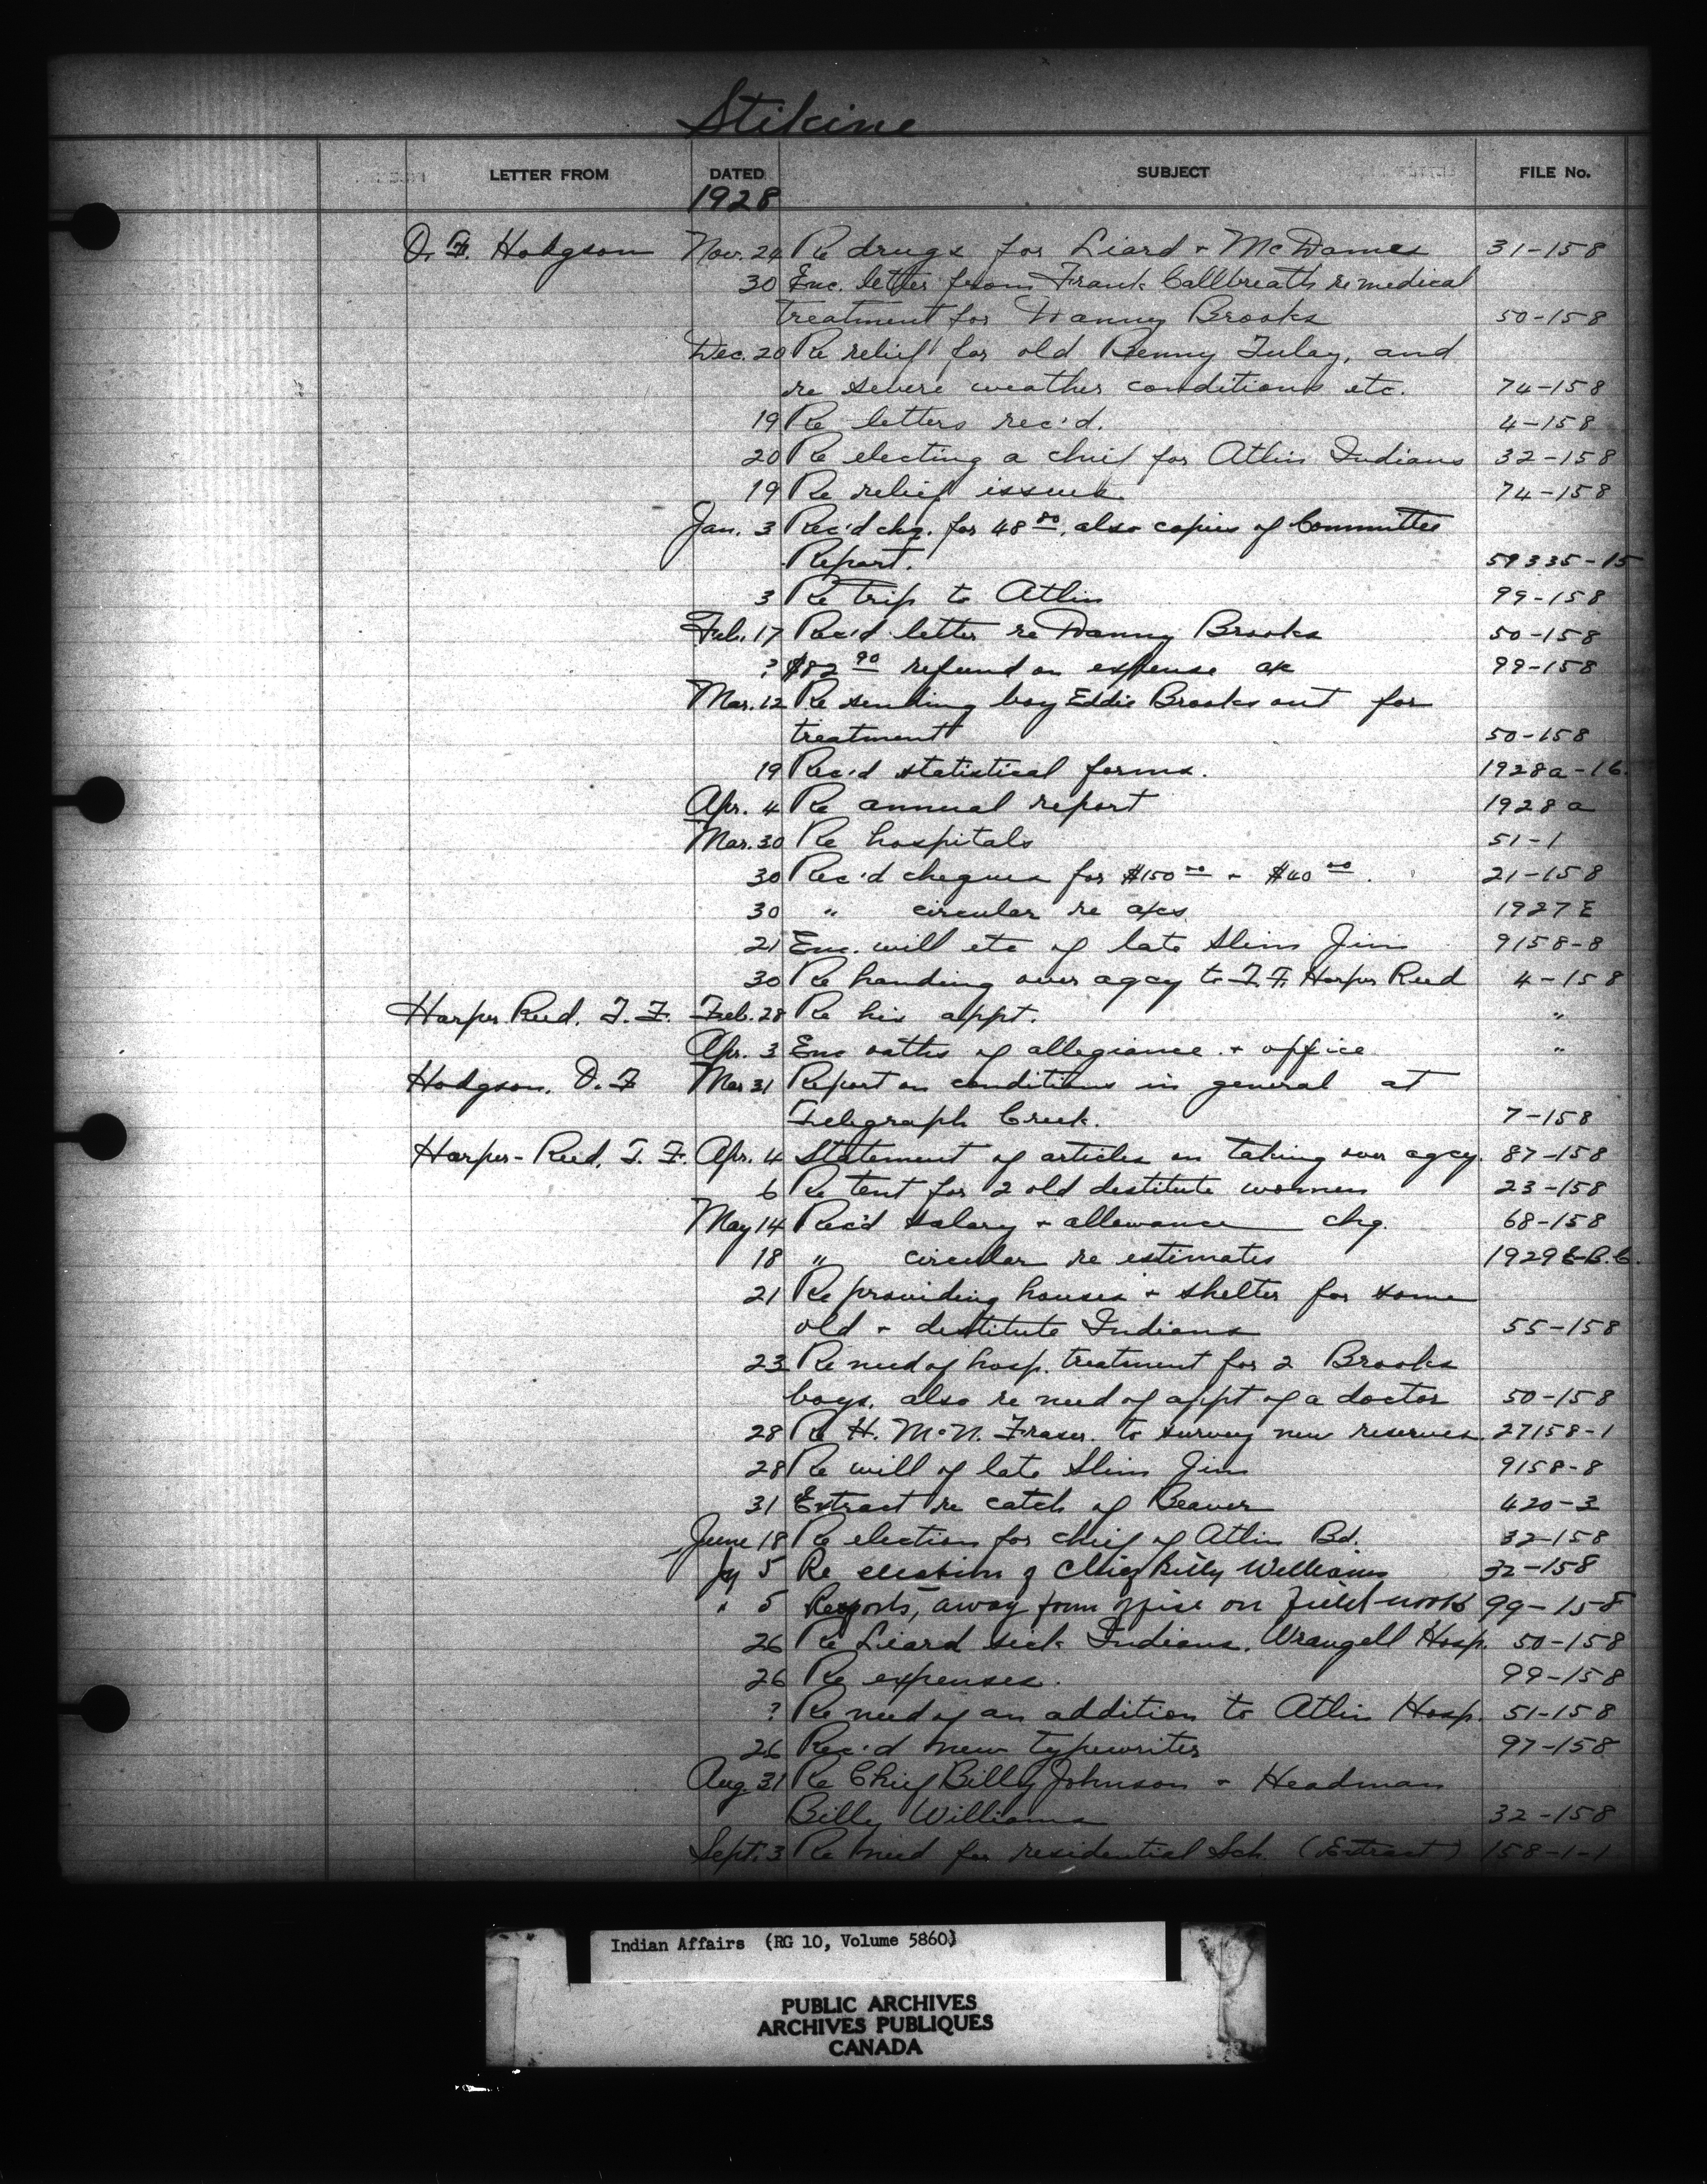 Stikine
LETTER FROM DATED SUBJECT FILE No.
1928
O. F. Hodgson Nov. 24 Re drugs for Liard + McDames 31-158
30 Enc. letter from Frank Callbreath re medical
treatment for Danny Brooks 50-158
Dec. 20 Re relief for old Benny Tulay, and
re severe weather conditions etc. 74-158
19 Re letters rec'd. 4-158
20 Re electing a chief for Atlin Indians 32-158
19 Re relief issued. 74-158
Jan. 3 Rec'd chq. for 48 80, also copies of Committee
Report. 59335-15
3 Re trip to Atlin 99-158
Feb. 17 Rec'd letter re Danny Brooks 50-158
? $82 90 refund on expense a/c 99-158
Mar. 12 Re sending boy Eddie Brooks out for
treatment 50-158
19 Rec'd statistical forms. 1928a-16.
Apr. 4 Re annual report 1928a
Mar. 30 Re hospitals 51-1
30 Rec'd cheques for $150 00 + $40 00. 21-158
30 " circular re a/cs 1927 E
21 Enc. will etc of late Slim Jim 9158-8
30 Re handing over agcy to T. F. Harper Reed 4-158
Harper Reed. T. F. Feb. 28 Re his appt. "
Apr. 3 Enc oaths of allegiance + office "
Hodgson. O. F Mar 31 Report on conditions in general at
Telegraph Creek. 7-158
Harper-Reed, T. F. Apr. 4 Statement of articles on taking over agcy. 87-158
6 Re tent for 2 old destitute women 23-158
May 14 Rec'd salary + allowance chq. 68-158
18 " circular re estimates 1929E-B.C.
21 Re providing houses + shelter for some
old + destitute Indians 55-158
23 Re need of hosp. treatment for 2 Brooks
boys, also re need of appt of a doctor 50-158
28 Re H. McN. Fraser. to survey new reserves. 27158-1
28 Re will of late Slim Jim 9158-8
31 Extract re catch of Beaver 420-3
June 18 Re election for chief of Atlin Bd. 32-158
Jy 5 Re election of Chief Billy Williams 32-158
" 5 Reports, away from office on Field-work 99-158
26 Re Liard sick Indians. Wrangell Hosp. 50-158
26 Re expenses. 99-158
? Re need of an addition to Atlin Hosp. 51-158
26 Rec'd new typewriter 97-158
Aug. 31 Re Chief Billy Johnson + Headman
Billy Williams 32-158
Sept. 3 Re need for residential Sch. (Extract) 158-1-1
Indian Affairs (RG 10, Volume 5860)
PUBLIC ARCHIVES
ARCHIVES PUBLIQUES
CANADA